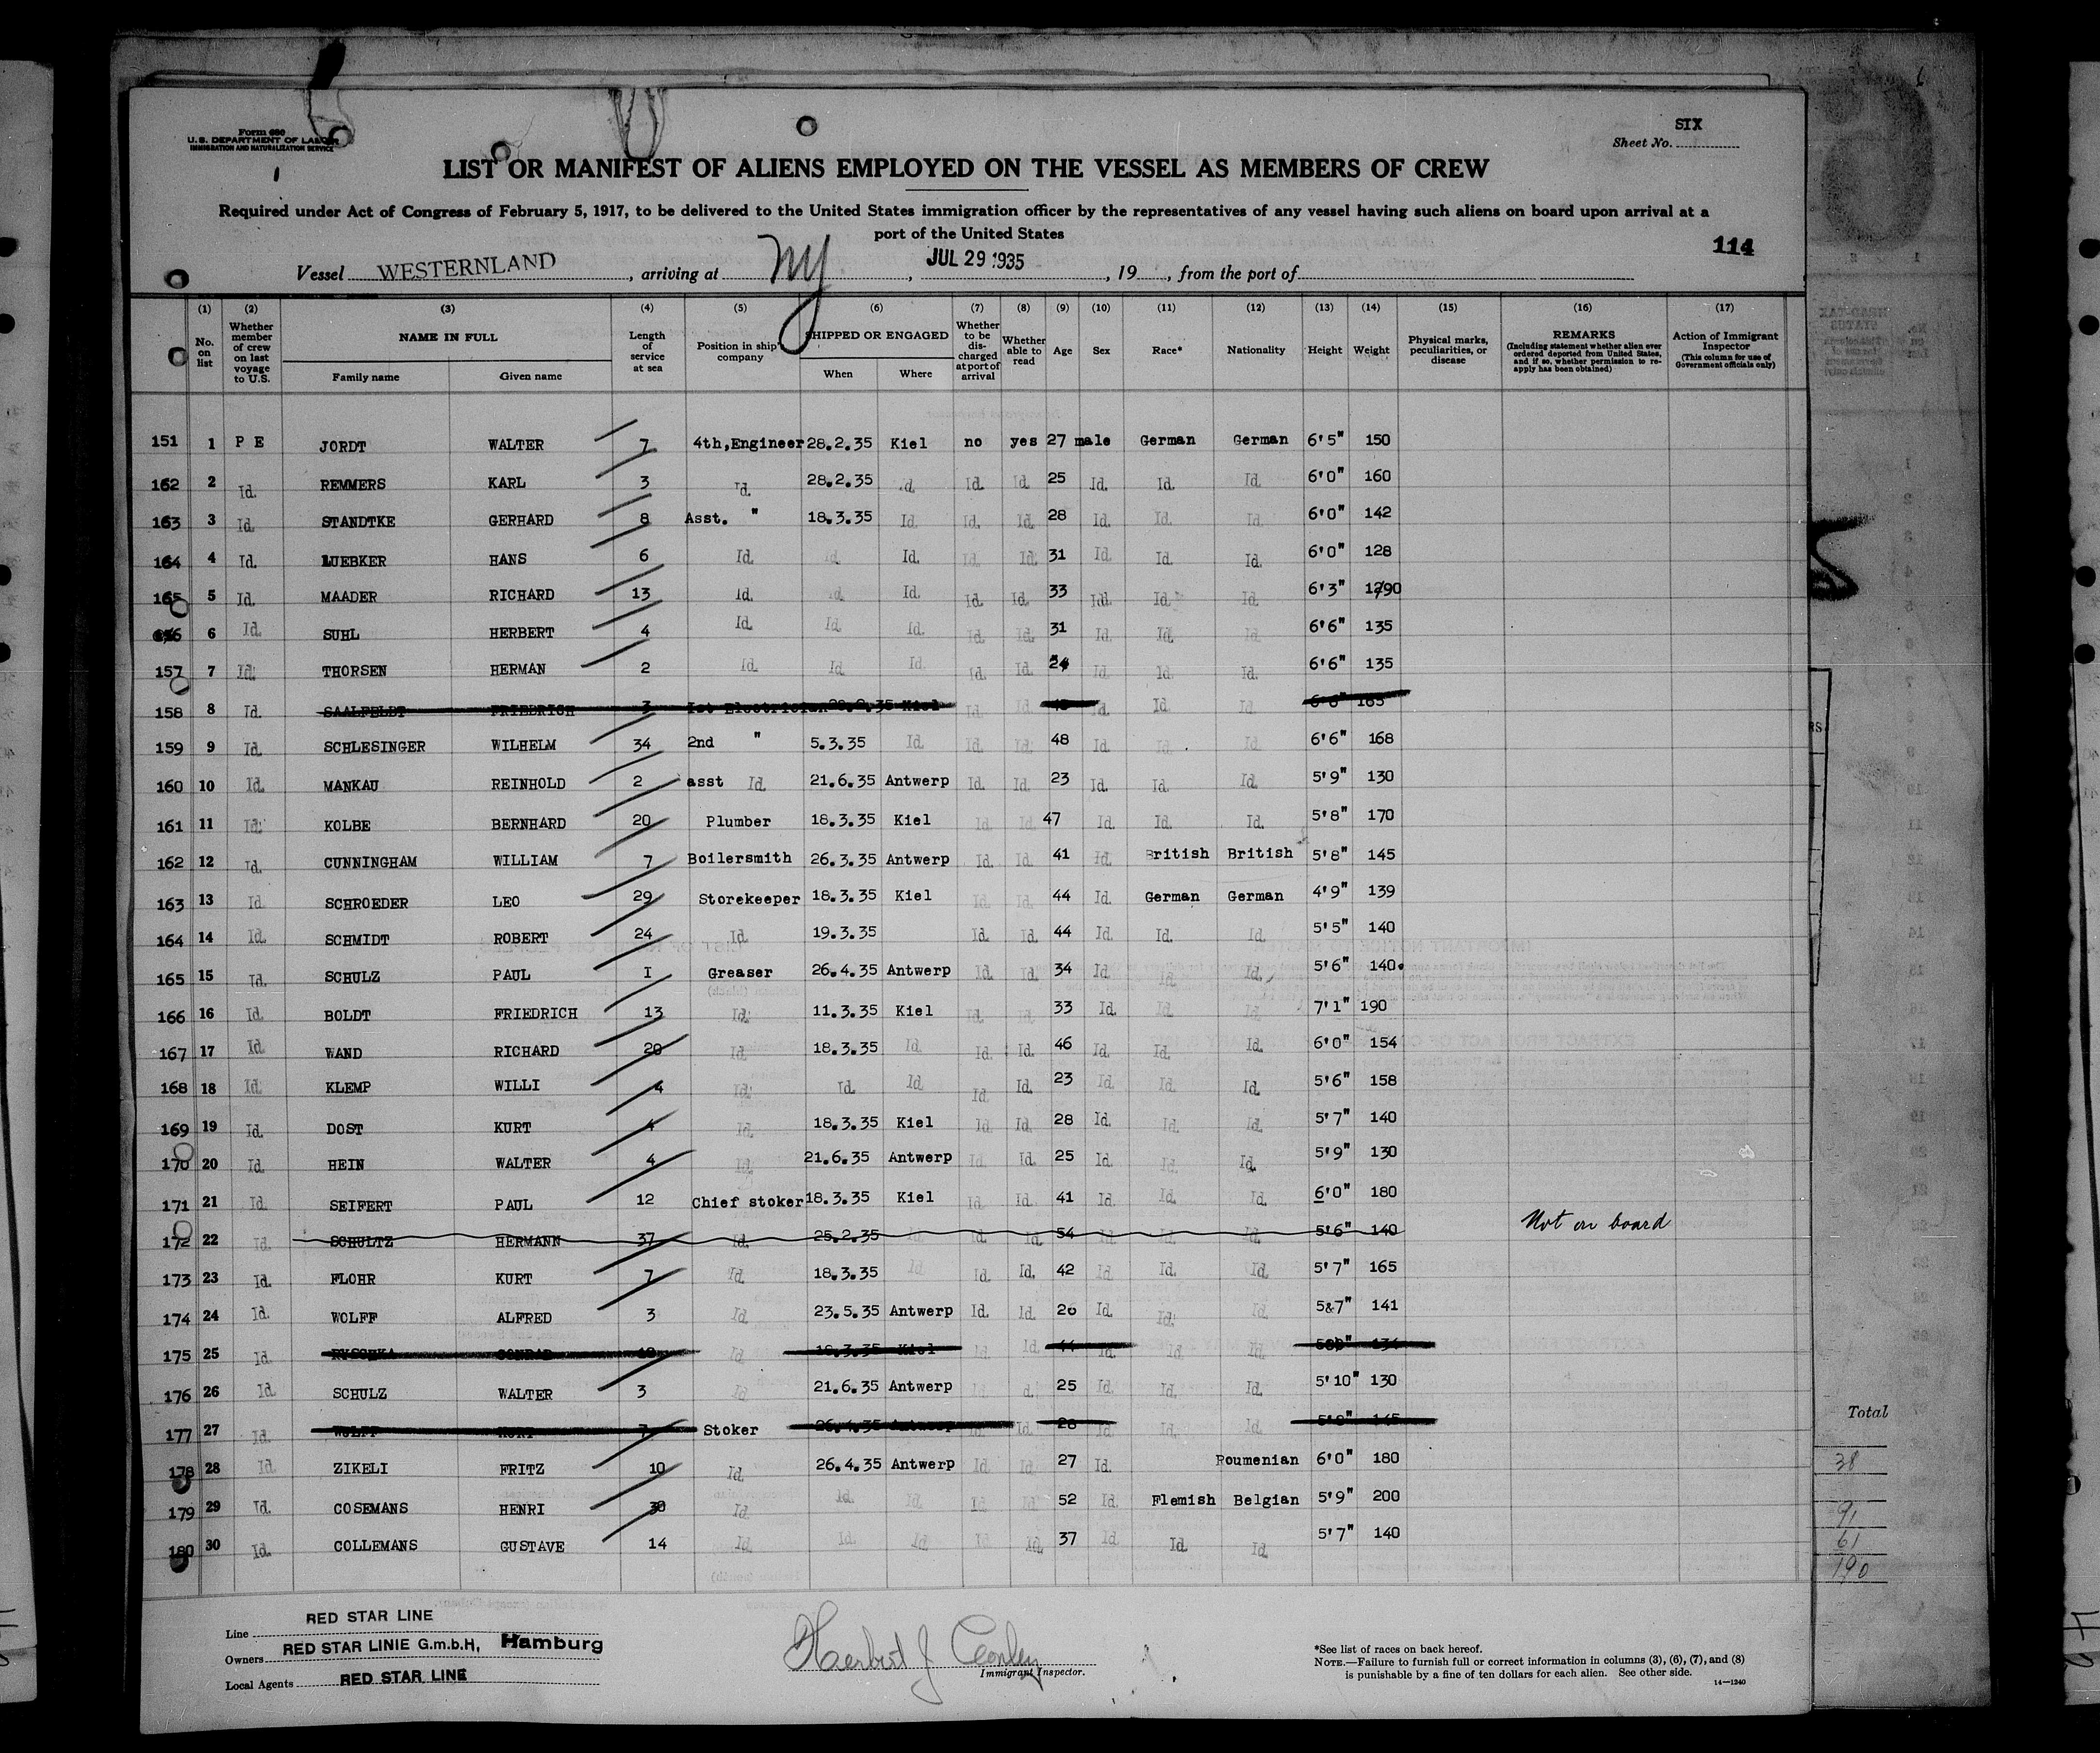 Form 680
U.S. DEPARTMENT OF LABOR
IMMIGRATION AND NATURALIZATION SERVICE
SIX
Sheet No.
LIST OR MANIFEST OF ALIENS EMPLOYED ON THE VESSEL AS MEMBERS OF CREW
Required under Act of Congress of February 5, 1917, to be delivered to the United States immigration officer by the representatives of any vessel having such aliens on board upon arrival at a
port of the United States
114
Vessel WESTERNLAND, arriving at NY, JUL 29 1935, 19, from the port of
(1) (2) (3) (4) (5) (6) (7) (8) (9) (10) (11) (12) (13) (14) (15) (16) (17)
No. on list
Whether member of crew on last voyage to U.S.
NAME IN FULL
Family name Given name
Length of service at sea
Position in ship's company
SHIPPED OR ENGAGED
When Where
Whether to be discharged at port of arrival
Whether able to read
Age Sex Race* Nationality Height Weight
Physical marks, peculiarities, or disease
REMARKS
(Including statement whether alien ever ordered deported from United States, and if so, whether permission to reapply has been obtained)
Action of Immigrant Inspector
(This column for use of Government officials only)
151 1 P E JORDT WALTER 7 4th,Engineer 28.2.35 Kiel no yes 27 male German German 6'5" 150
162 2 Id. REMMERS KARL 3 Id. 28.2.35 Id. Id. Id. 25 Id. Id. Id. 6'0" 160
163 3 Id. STANDTKE GERHARD 8 Asst. " 18.3.35 Id. Id. Id. 28 Id. Id. Id. 6'0" 142
164 4 Id. LUEBKER HANS 6 Id. Id. Id. Id. Id. 31 Id. Id. Id. 6'0" 128
165 5 Id. MAADER RICHARD 13 Id. Id. Id. Id. Id. 33 Id. Id. Id. 6'3"
6 Id. SUHL HERBERT 4 Id. Id. Id. Id. Id. 31 Id. Id. Id. 6'6" 135
157 7 Id. THORSEN HERMAN 2 Id. Id. Id. Id. Id. 24 Id. Id. Id. 6'6" 135
158 8 Id. SAALFELDT FRIEDRICH 3 1st Electrician Kiel Id. Id. Id. Id. Id. 6'6" 165
159 9 Id. SCHLESINGER WILHELM 34 2nd " 5.3.35 Id. Id. Id. 48 Id. Id. Id. 6'6" 168
160 10 Id. MANKAU REINHOLD 2 asst Id. 21.6.35 Antwerp Id. Id. 23 Id. Id. Id. 5'9" 130
161 11 Id. KOLBE BERNHARD 20 Plumber 18.3.35 Kiel Id. Id. 47 Id. Id. Id. 5'8" 170
162 12 Id. CUNNINGHAM WILLIAM 7 Boilersmith 26.3.35 Antwerp Id. Id. 41 Id. British British 5'8" 145
163 13 Id. SCHROEDER LEO 29 Storekeeper 18.3.35 Kiel Id. Id. 44 Id. German German 4'9" 139
164 14 Id. SCHMIDT ROBERT 24 Id. 19.3.35 Id. Id. 44 Id. Id. Id. 5'5" 140
165 15 Id. SCHULZ PAUL I Greaser 26.4.35 Antwerp Id. Id. 34 Id. Id. Id. 5'6" 140.
166 16 Id. BOLDT FRIEDRICH 13 Id. 11.3.35 Kiel Id. Id. 33 Id. Id. Id. 7'1" 190
167 17 Id. WAND RICHARD 20 Id. 18.3.35 Id. Id. Id. 46 Id. Id. Id. 6'0" 154
168 18 Id. KLEMP WILLI 4 Id. Id. Id. Id. Id. 23 Id. Id. Id. 5'6" 158
169 19 Id. DOST KURT 4 Id. 18.3.35 Kiel Id. Id. 28 Id. Id. Id. 5'7" 140
170 20 Id. HEIN WALTER 4 Id. 21.6.35 Antwerp Id. Id. 25 Id. Id. Id. 5'9" 130
171 21 Id. SEIFERT PAUL 12 Chief stoker 18.3.35 Kiel Id. Id. 41 Id. Id. Id. 6'0" 180
172 22 Id. SCHULTZ HERMANN 37 Id. 25.2.35 Id. Id. Id. 54 Id. Id. Id. 5'6" 140 Not on board
173 23 Id. FLOHR KURT 7 Id. 18.3.35 Id. Id. Id. 42 Id. Id. Id. 5'7" 165
174 24 Id. WOLFF ALFRED 3 Id. 23.5.35 Antwerp Id. Id. 26 Id. Id. Id. 5&7" 141
175 25 Id. CONRAD Id. 18.3.35 Kiel Id. 44 Id. Id. Id. 134
176 26 Id. SCHULZ WALTER 3 Id. 21.6.35 Antwerp Id. 25 Id. Id. Id. 5'10" 130
177 27 Id. WOLFF KURT 7 Stoker 26.4.35 Antwerp Id. 28 Id. Id. 5'8" 145
178 28 Id. ZIKELI FRITZ 10 Id. 26.4.35 Antwerp Id. Id. 27 Id. Roumenian 6'0" 180
179 29 Id. COSEMANS HENRI 30 Id. Id. Id. Id. Id. 52 Id. Flemish Belgian 5'9" 200
180 30 Id. COLLEMANS GUSTAVE 14 Id. Id. Id. Id. Id. 37 Id. Id. Id. 5'7" 140
Total
38
91
61
190
Line RED STAR LINE
Owners RED STAR LINIE G.m.b.H, Hamburg
Local Agents RED STAR LINE
Herbert J Conley
Immigrant Inspector.
*See list of races on back hereof.
NOTE.—Failure to furnish full or correct information in columns (3), (6), (7), and (8)
is punishable by a fine of ten dollars for each alien. See other side.
14—1240